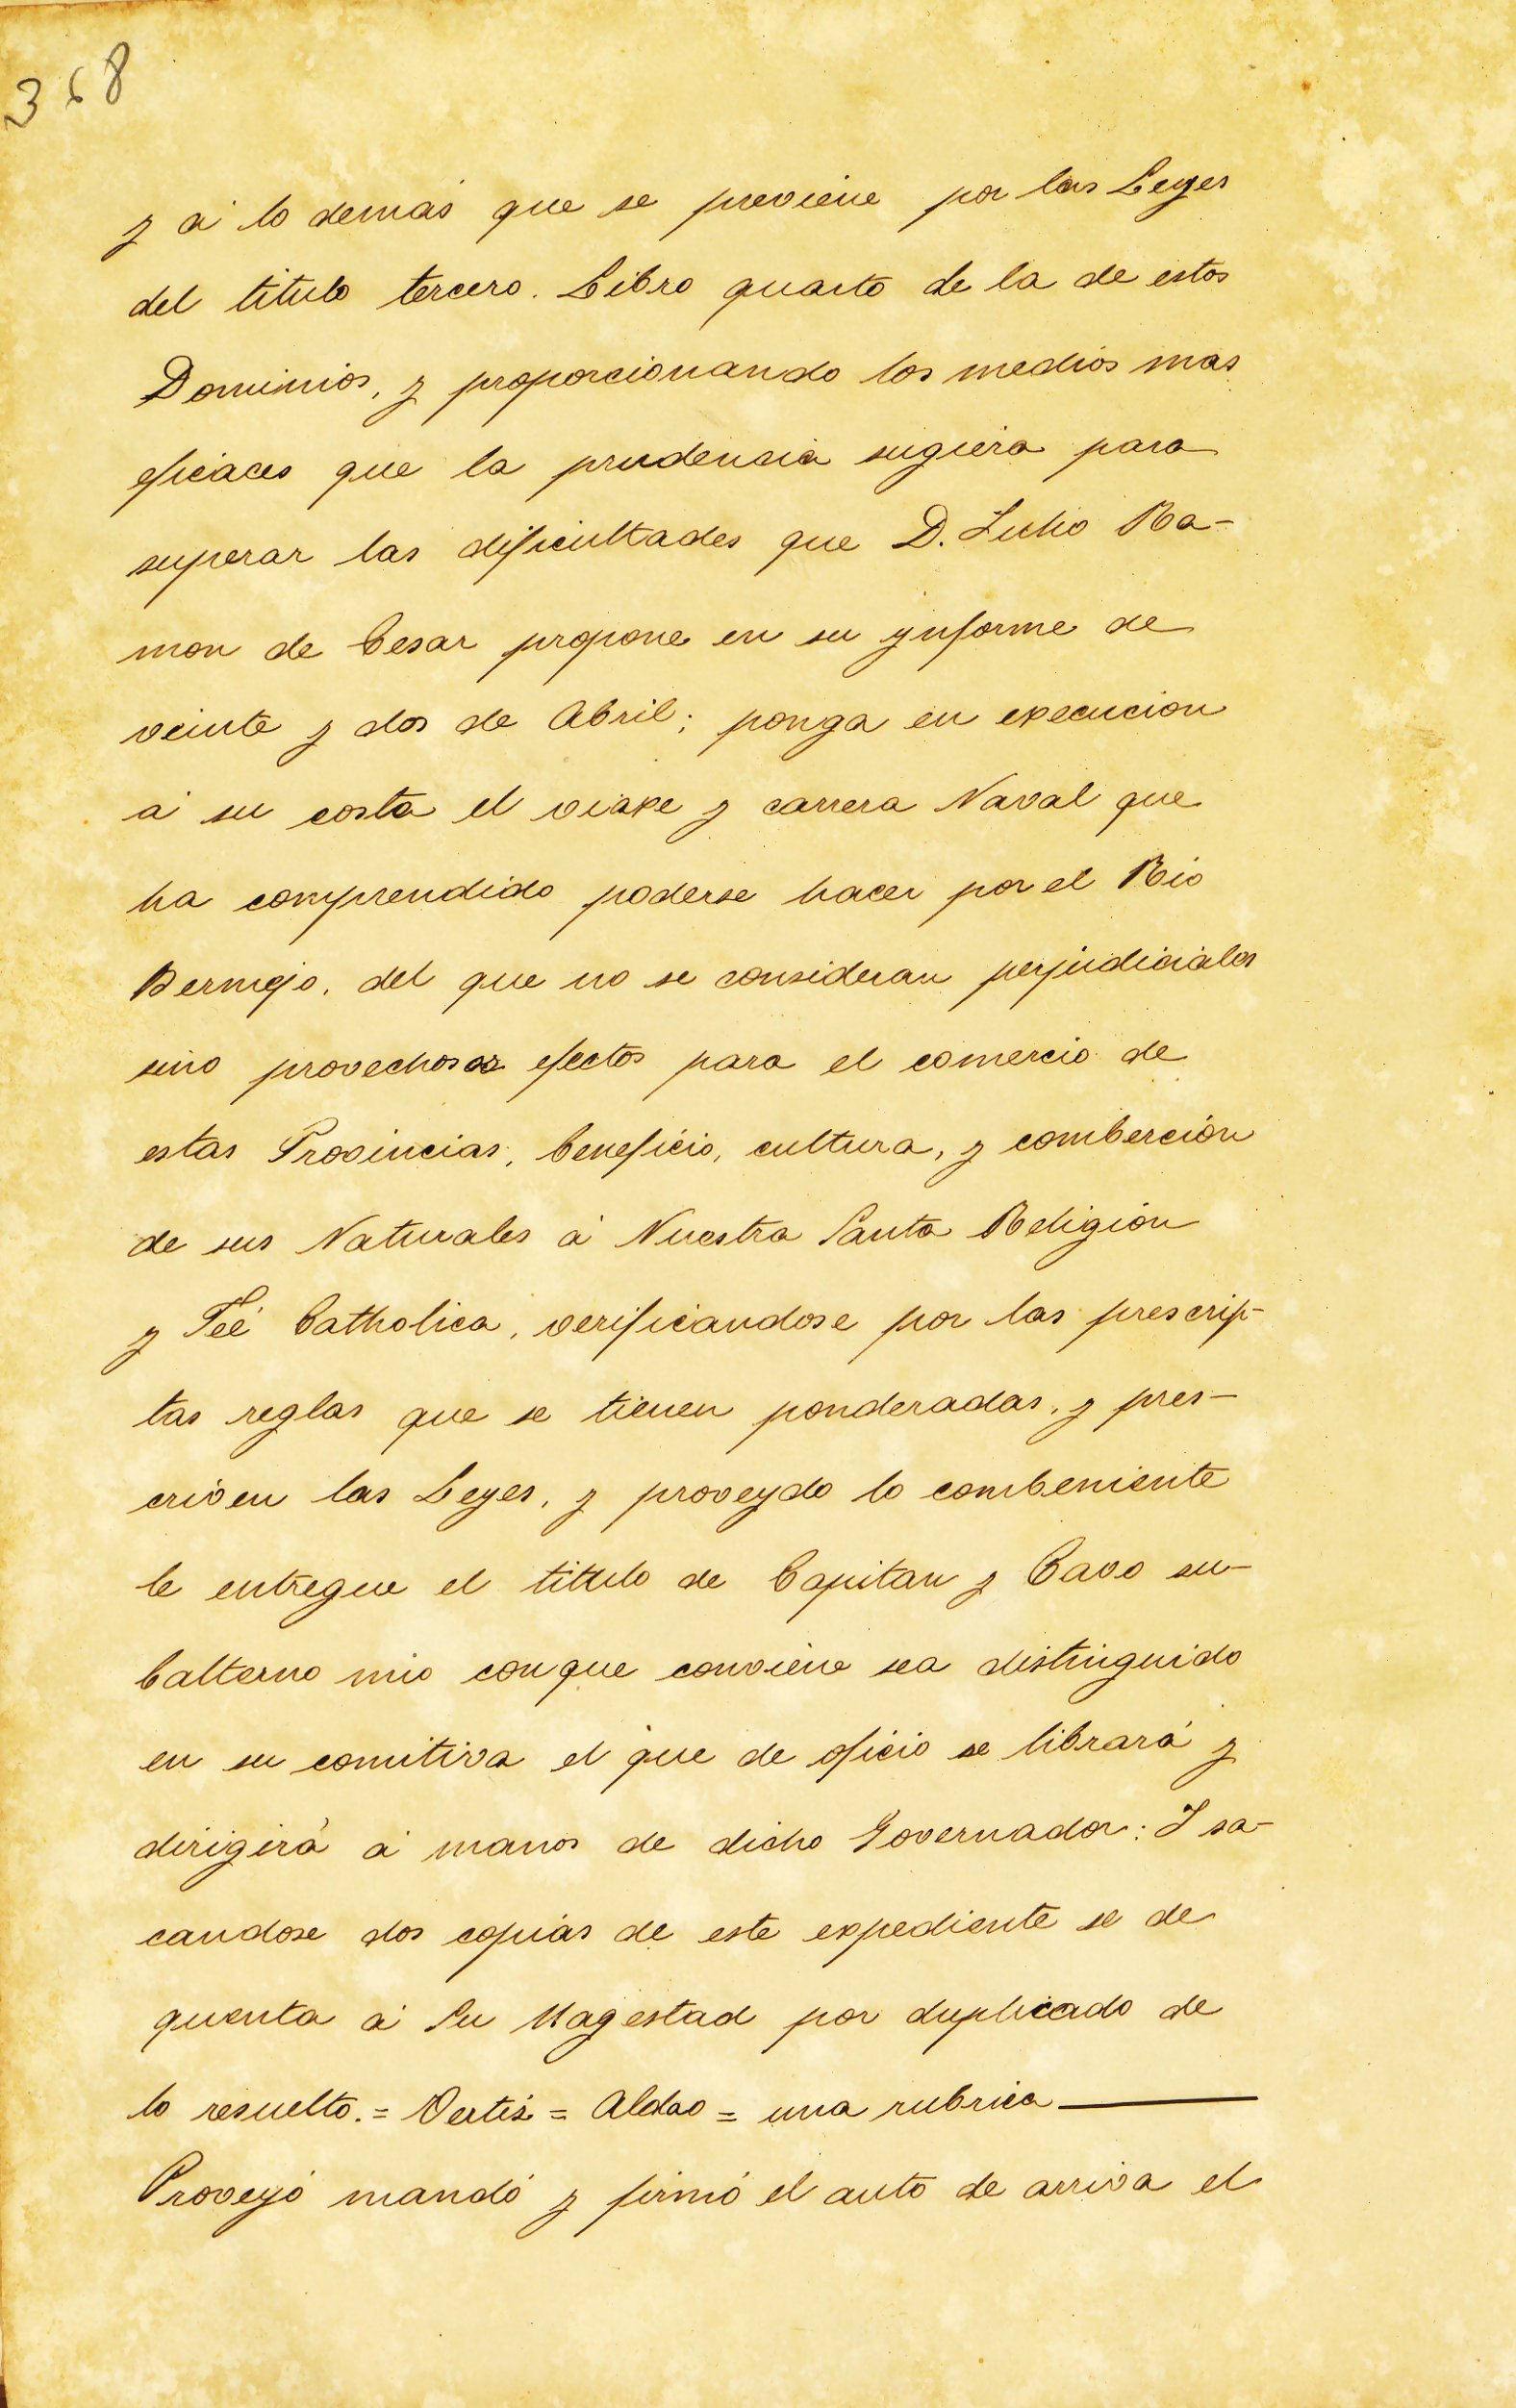 368
y á lo demás que se previene por las Leyes
del titulo tercero. Libro quarto de la de estos
Dominios, y proporcionando los medios mas
eficaces que la prudencia sugiera para
superar las dificultades que D. Lucho Ra-
mon de Cesar propone en su ynforme de
veinte y dos de Abril; ponga en execucion
á su costa el viaxe y carrera Naval que
ha comprendido poderse hacer por el Rio
Bermejo, del que no se consideran perjudiciales
sino provechosos efectos para el comercio de
estas Provincias, beneficio, cultura, y comberción
de sus Naturales á Nuestra Santa Religión
y Feé Catholica, verificandose por las prescrip-
tas reglas que se tienen ponderadas, y pres-
criven las Leyes, y proveydo lo combeniente
le entregue el titulo de Capitan y Cavo su-
balterno mio conque conviene sea distinguido
en su comitiva el que de oficio se librará y
dirigirá á manos de dicho Governador: I sa-
candose dos copias de este expediente se de
quenta á Su Magestad por duplicado de
lo resuelto. = Vertis = Aldao = una rubrica
Proveyó mandó y firmó el auto de arriva el